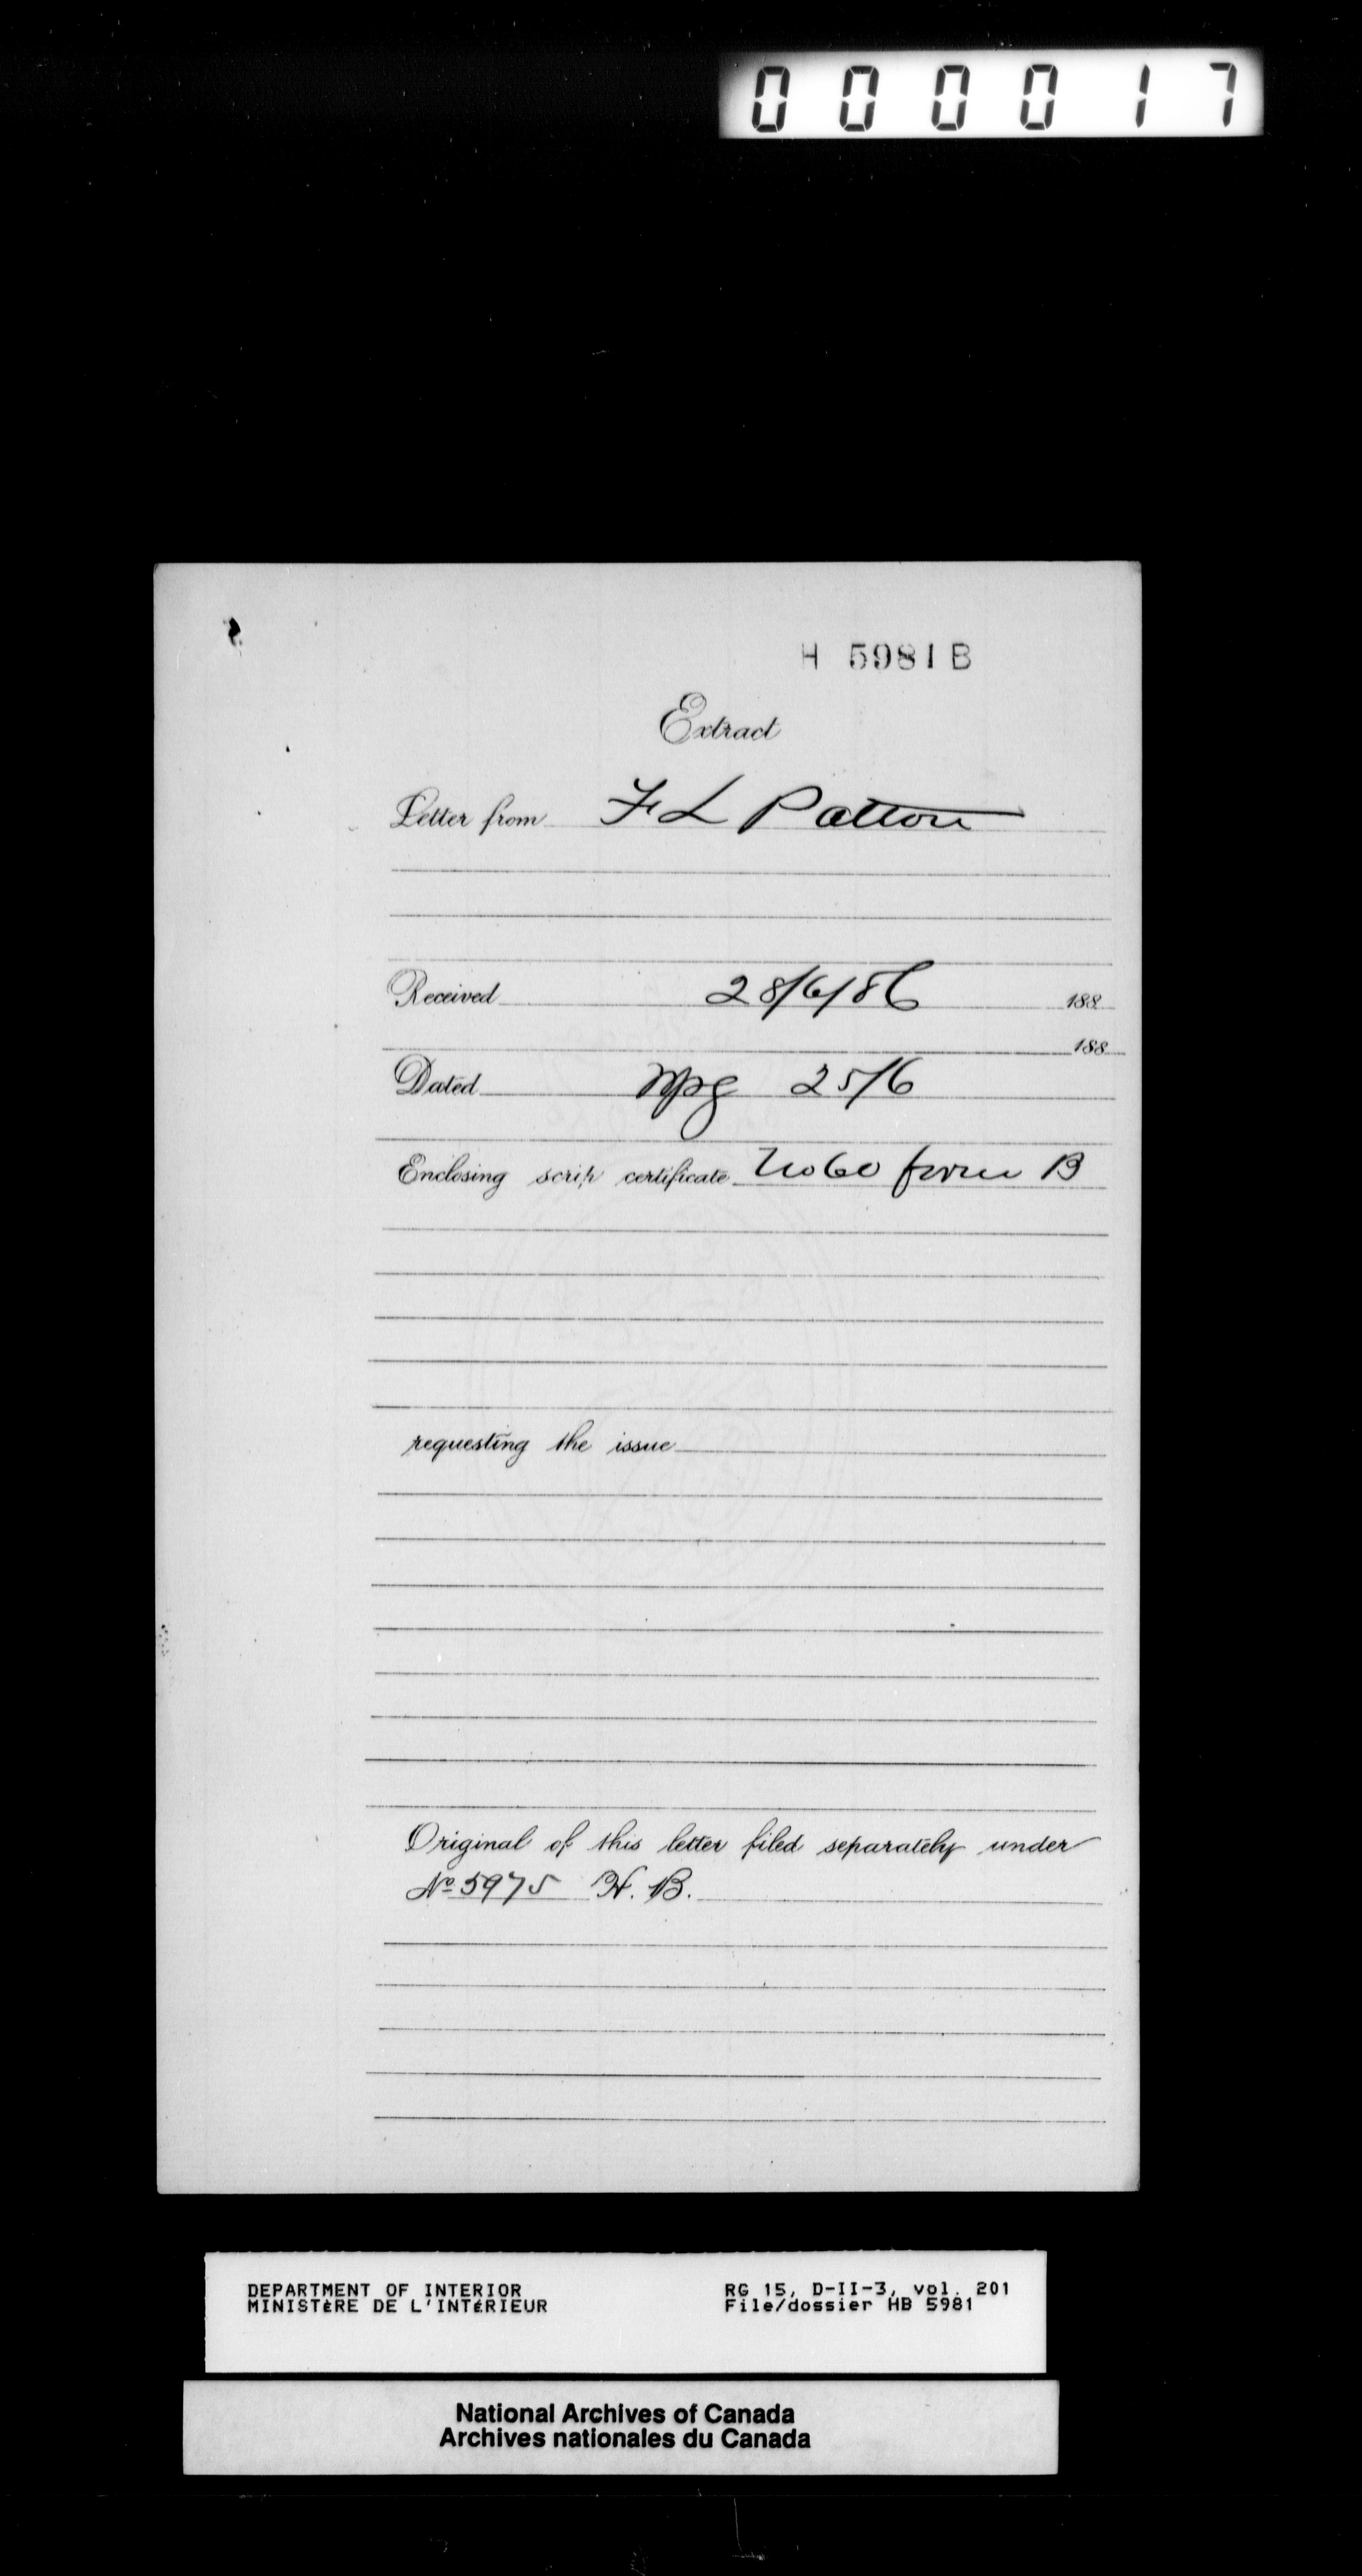 000017
H 5981 B
Extract
Letter from F L Patton
Received 28/6/86 188
188
Dated Wpg 25/6
Enclosing scrip certificate No 60 form B
requesting the issue
Original of this letter filed separately under
No 5975 H. B.
DEPARTMENT OF INTERIOR RG 15, D-II-3, vol. 201
MINISTÈRE DE L'INTÉRIEUR File/dossier HB 5981
National Archives of Canada
Archives nationales du Canada